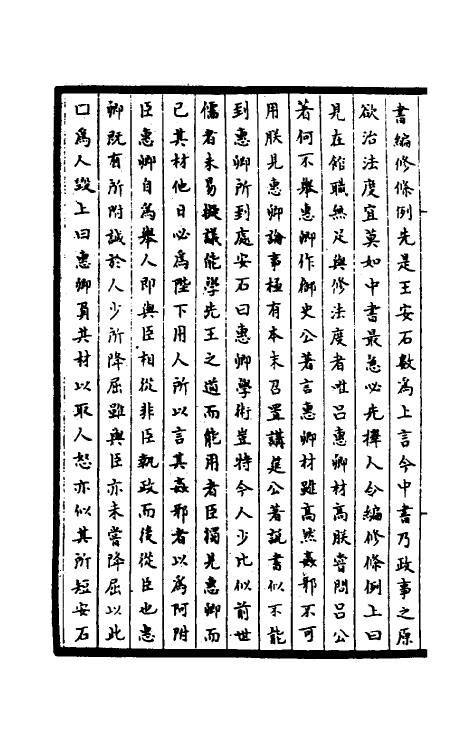 書編修條例先是王安石數為上言今中書乃政事之原
欲治法度宜莫如中書最急必先擇人令編修條例上曰
見在館職無足與修法度者唯呂惠卿材高朕嘗問呂公
著何不舉惠卿作御史公著言惠卿材雖高然姦邪不可
用朕見惠卿論事極有本末召置講筵公著說書似不能
到惠卿所到處安石曰惠卿學術豈特今人少比似前世
儒者未易擬議能學先王之道而能用者臣獨見惠卿而
已其材他日必為陛下用人所以言其姦邪者以為阿附
臣惠卿自為舉人即與臣相從非臣執政而後從臣也惠
卿既有所附誠於人少所降屈雖與臣亦未嘗降屈以此
口為人毀上曰惠卿負其材以取人怒亦似其所短安石